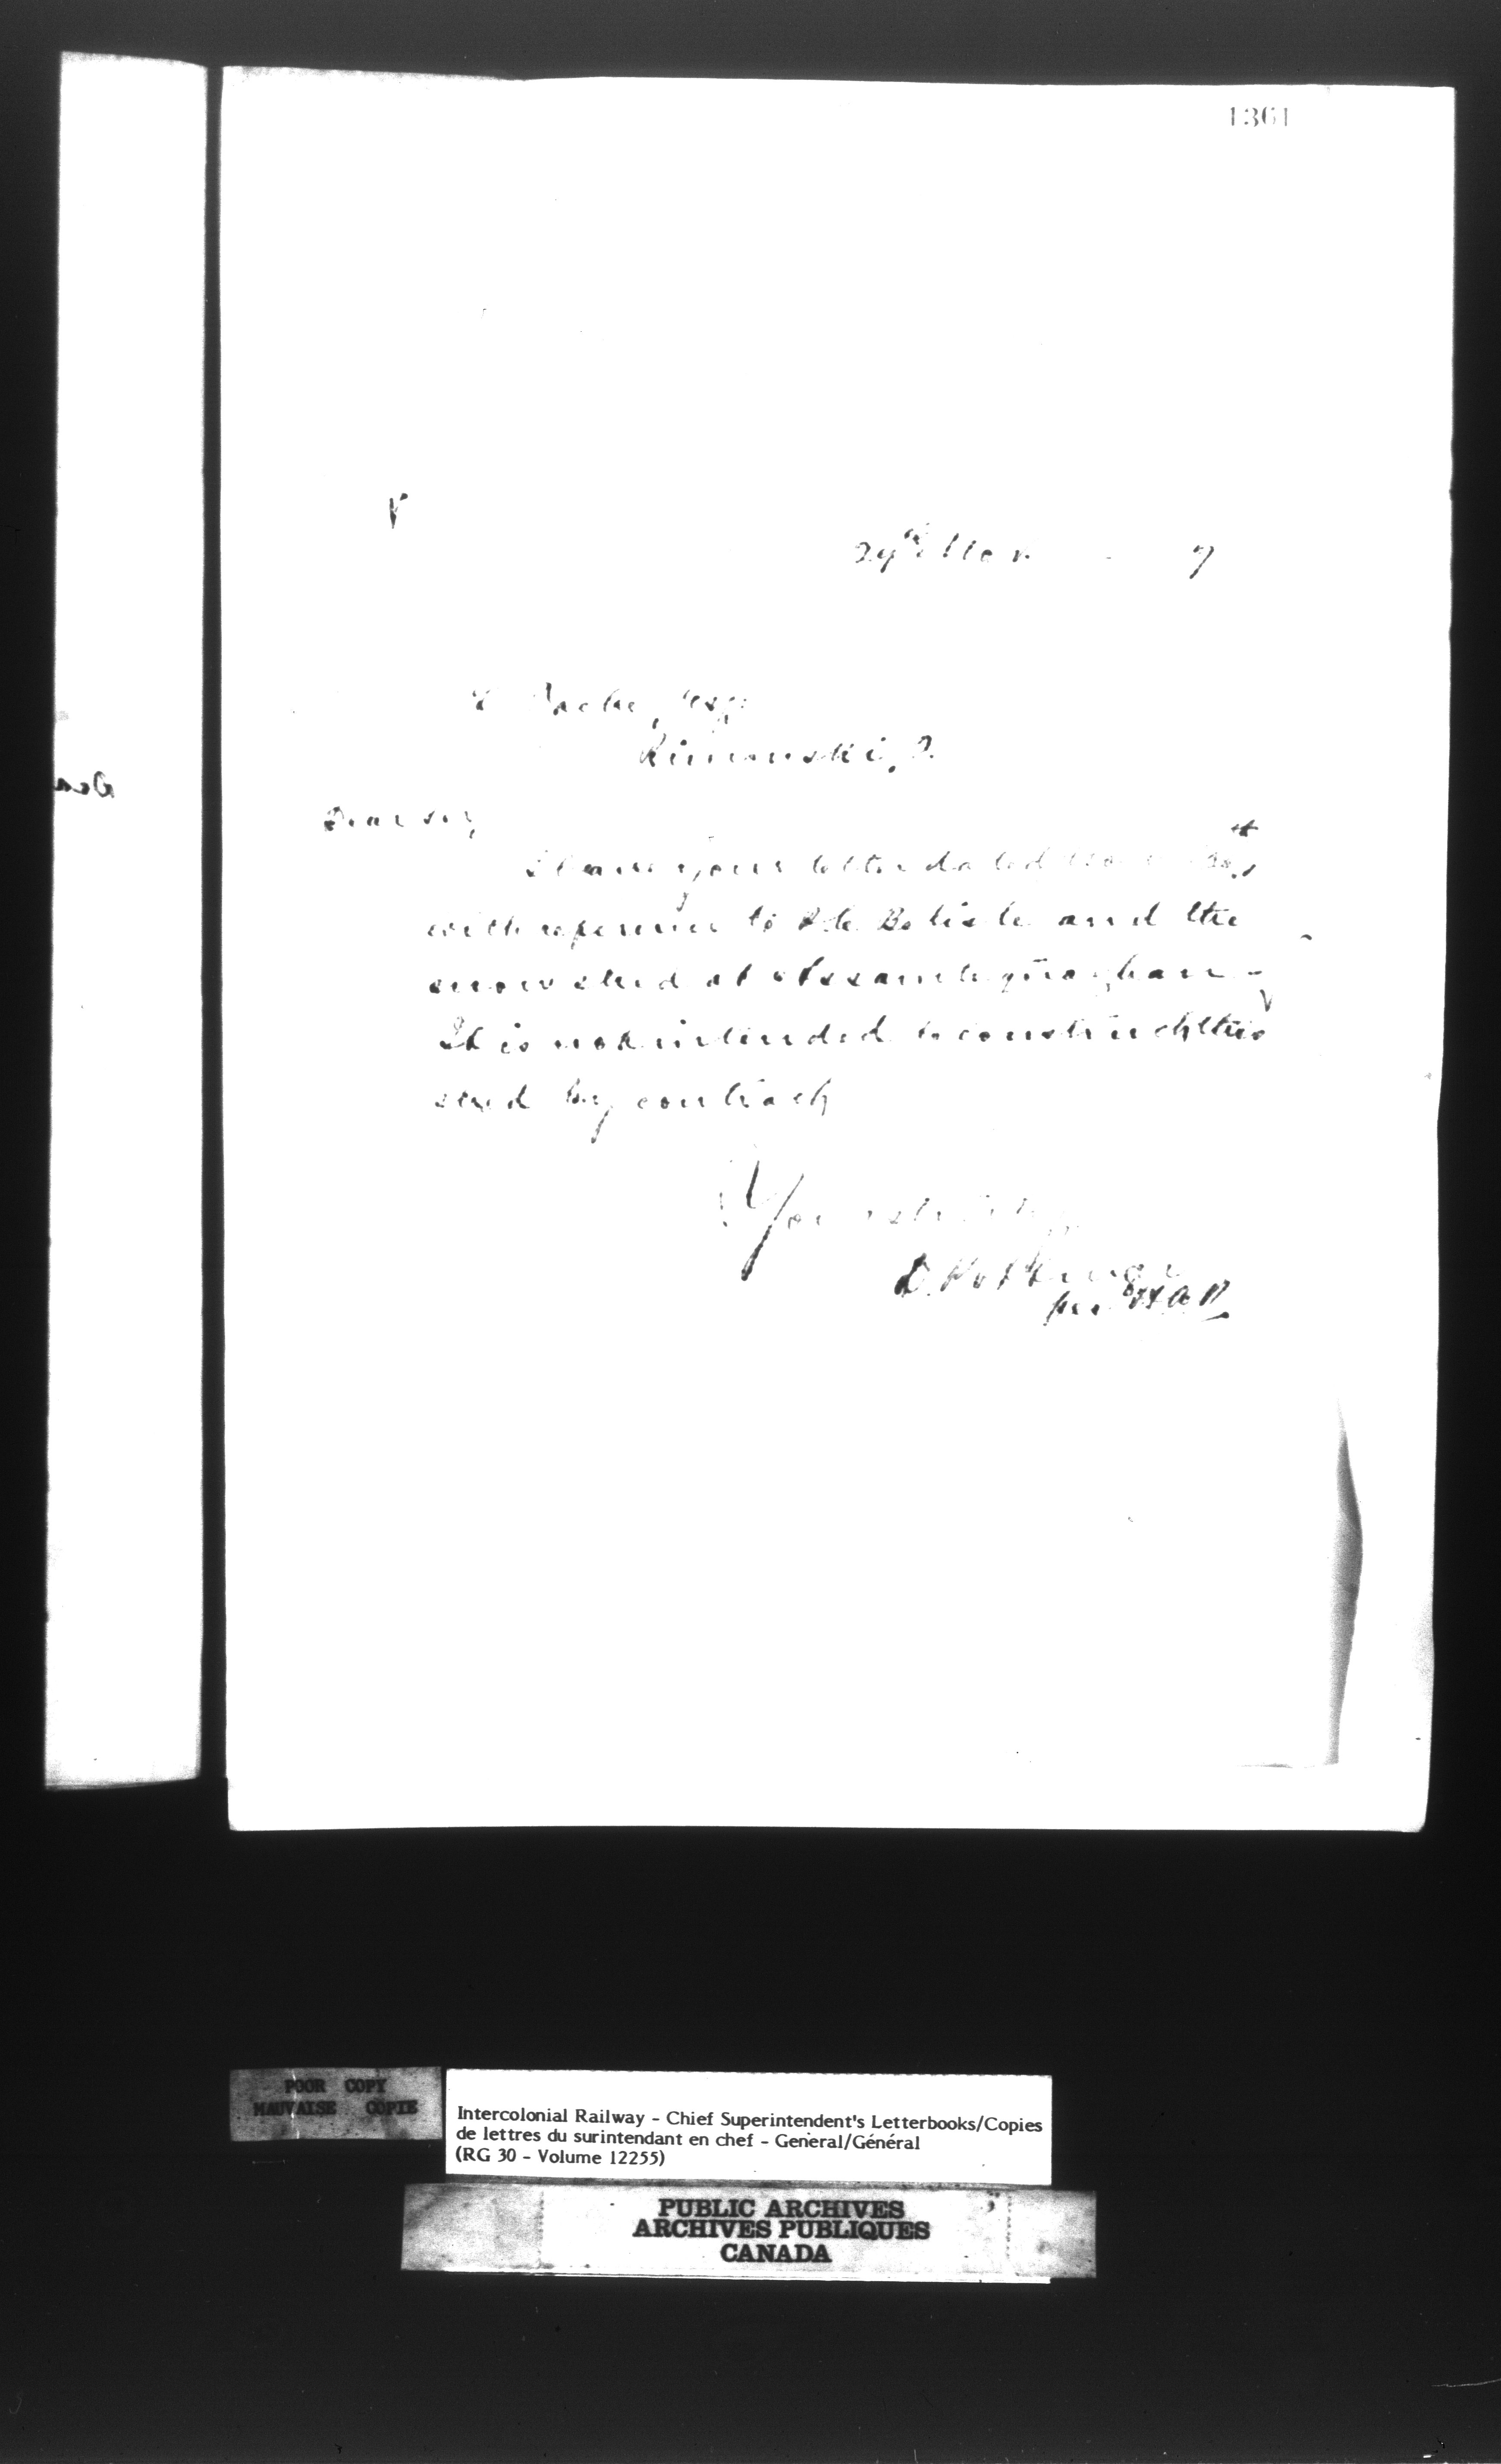 1361
29th Mar 7
Tache, Esq.
Rimouski, Q.
Dear Sir,
I have your letter dated
with reference to Belisle and the
snow shed at Assametquaghan -
It is not intended to construct this
shed by contract
Yours truly
D. Pottinger
per HAP
Dea
POOR COPY
MAUVAISE COPIE
Intercolonial Railway - Chief Superintendent's Letterbooks/Copies
de lettres du surintendant en chef - General/Général
(RG 30 - Volume 12255)
PUBLIC ARCHIVES
ARCHIVES PUBLIQUES
CANADA